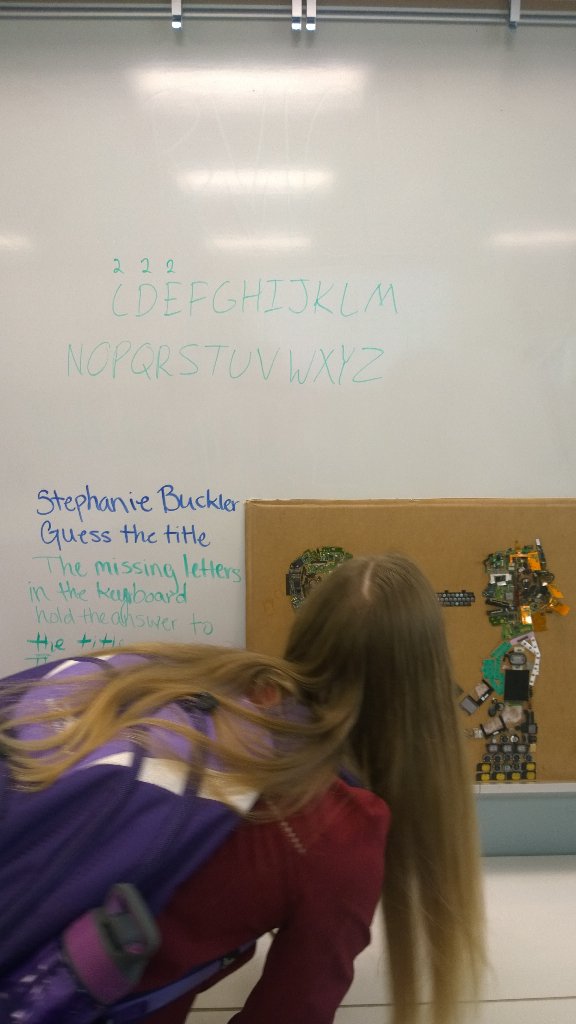 2 2 2
CDEFGHIJKLM
NOPQRSTUVWXYZ
Stephanie Buckler
Guess the title
The missing letters
in the keyboard
hold the answer to
the title